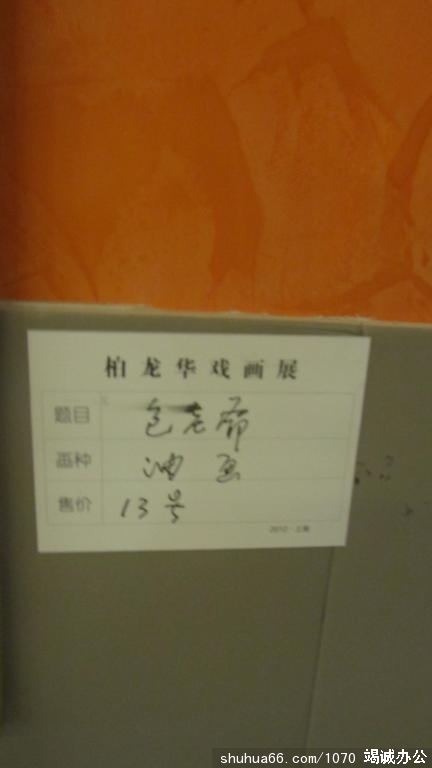 柏龙华戏画展
题目 包老爷
画种 油画
售价 13号
2010·上海
shuhua66.com/1070 竭诚办公